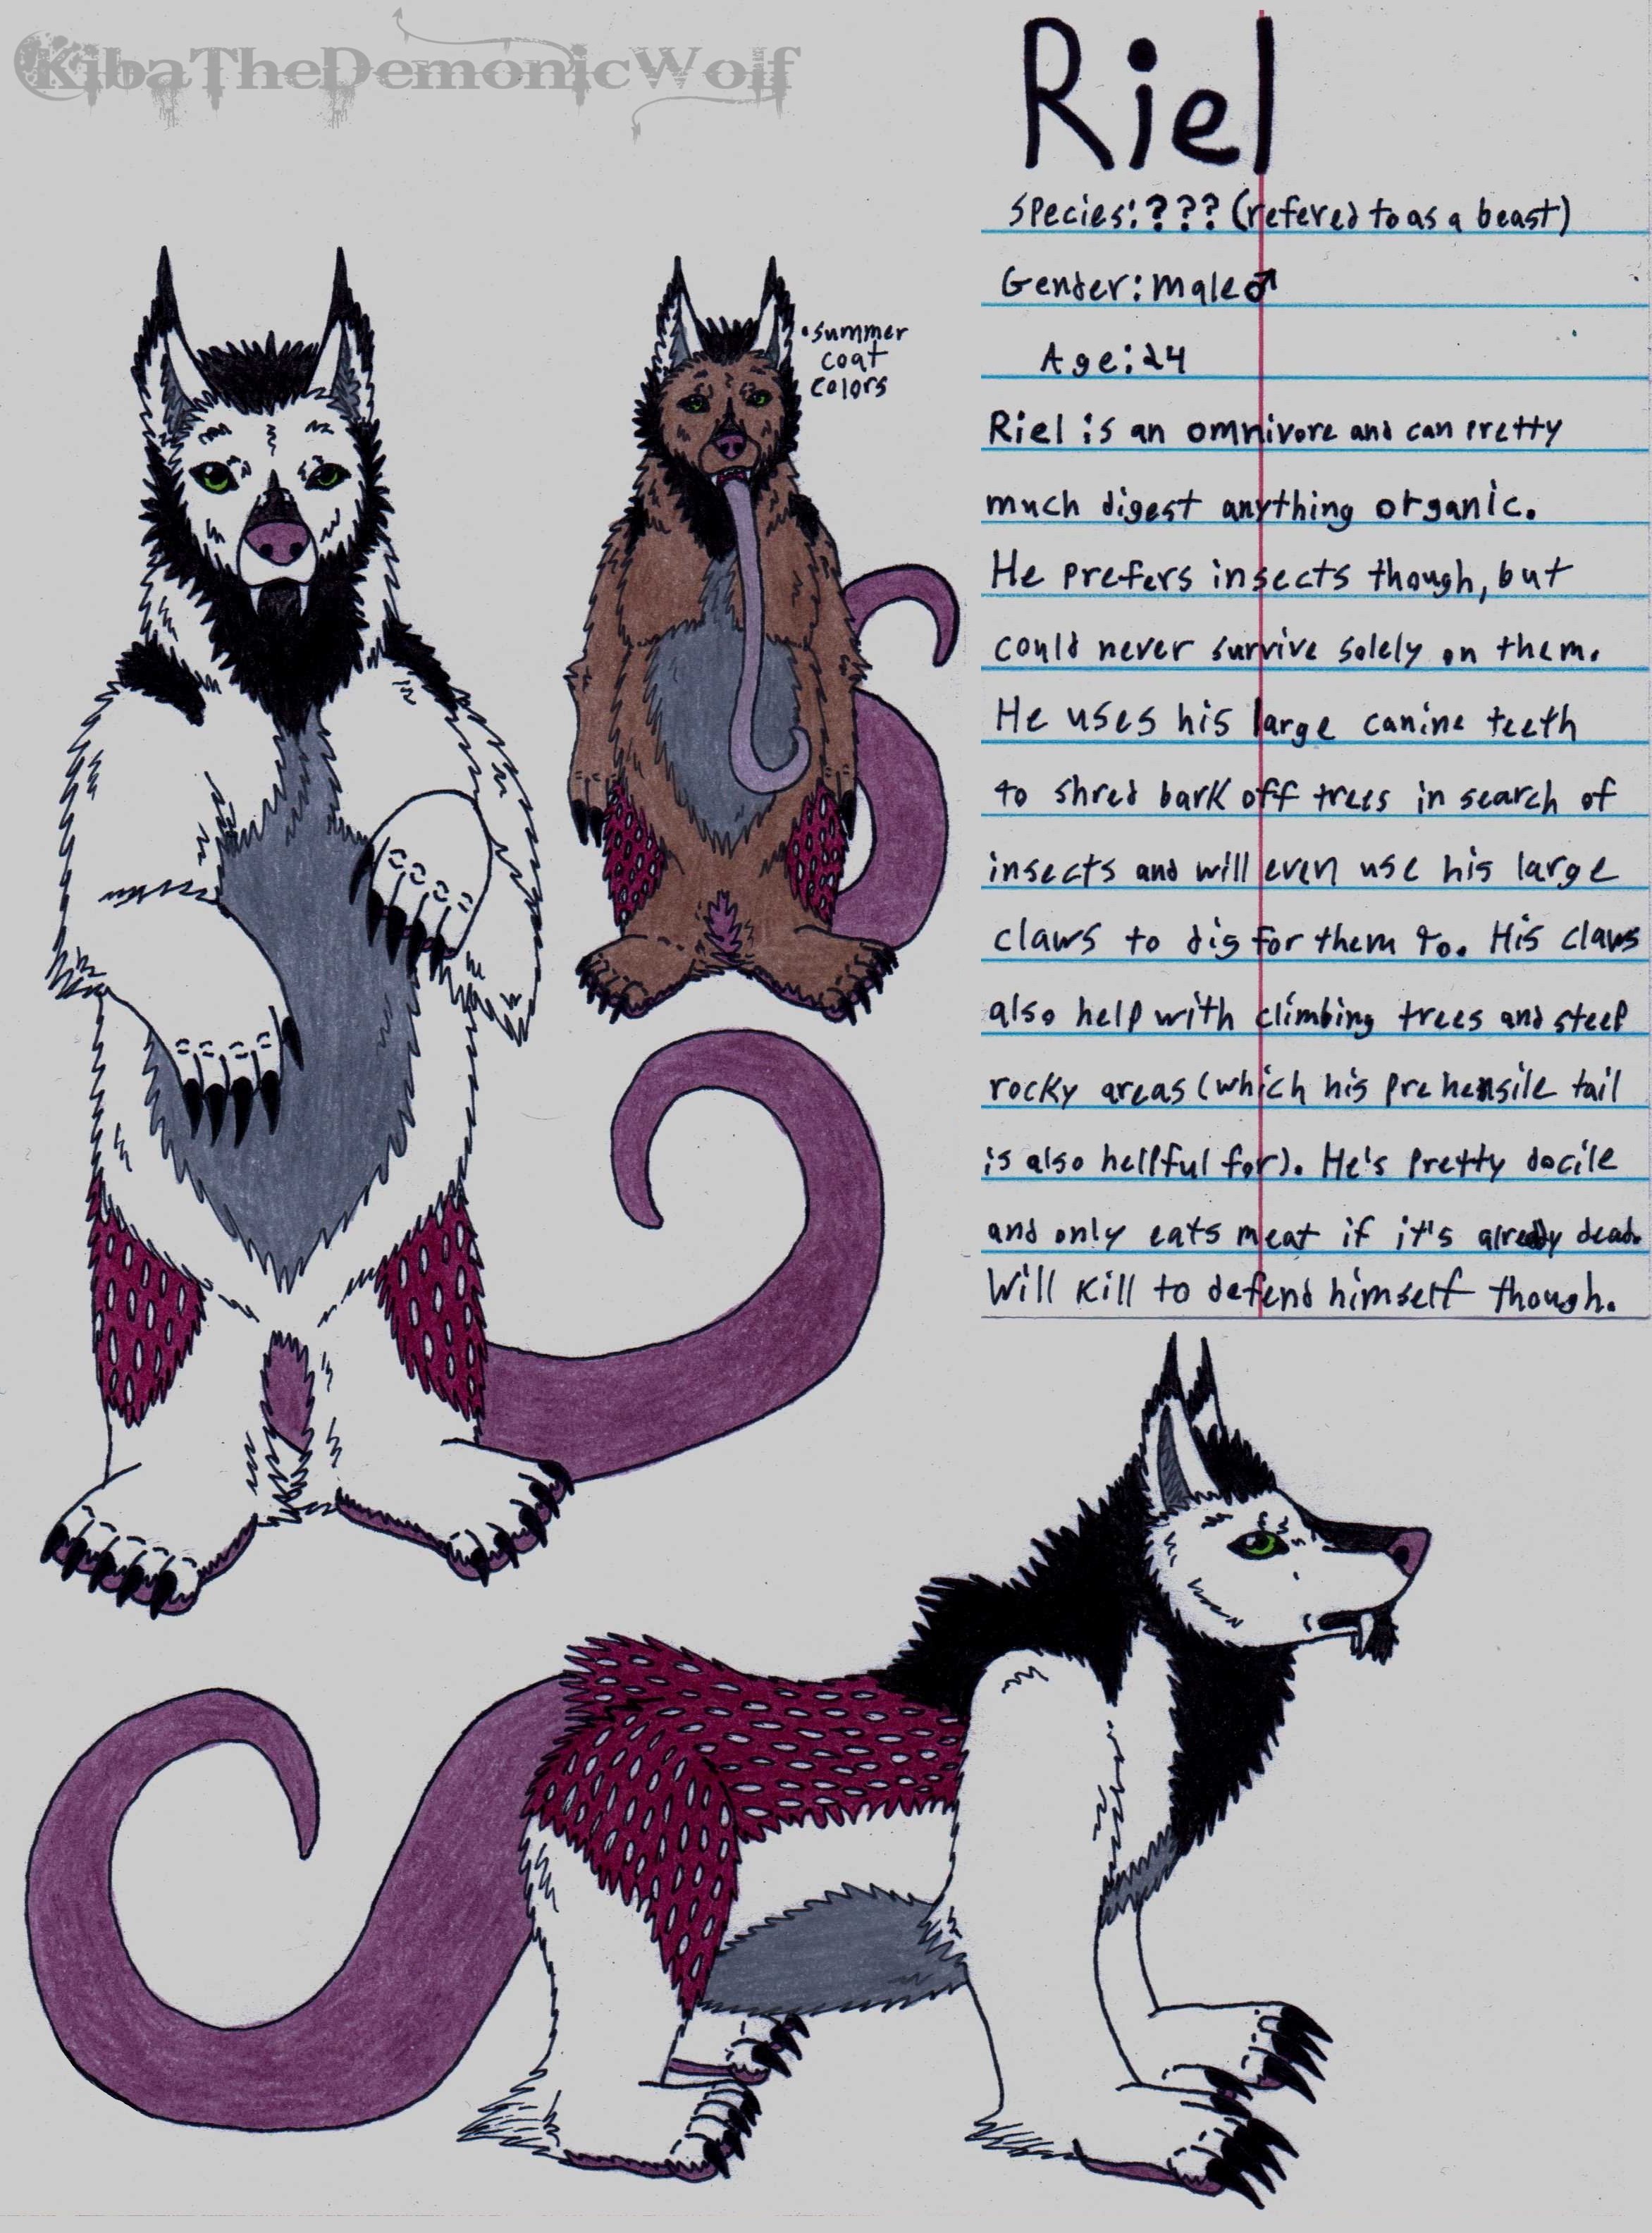 KibaTheDemonicWolf
Riel
Species:??? (refered to as a beast)
Gender: Male♂
Age:24
Riel is an omnivore and can pretty
much digest anything organic.
He prefers insects though, but
could never survive solely on them.
He uses his large canine teeth
to shred bark off trees in search of
insects and will even use his large
claws to dig for them to. His claws
also help with climbing trees and steep
rocky areas (which his prehensile tail
is also hellpful for). He's pretty docile
and only eats meat if it's already dead.
Will kill to defend himself though.
•summer
coat
colors